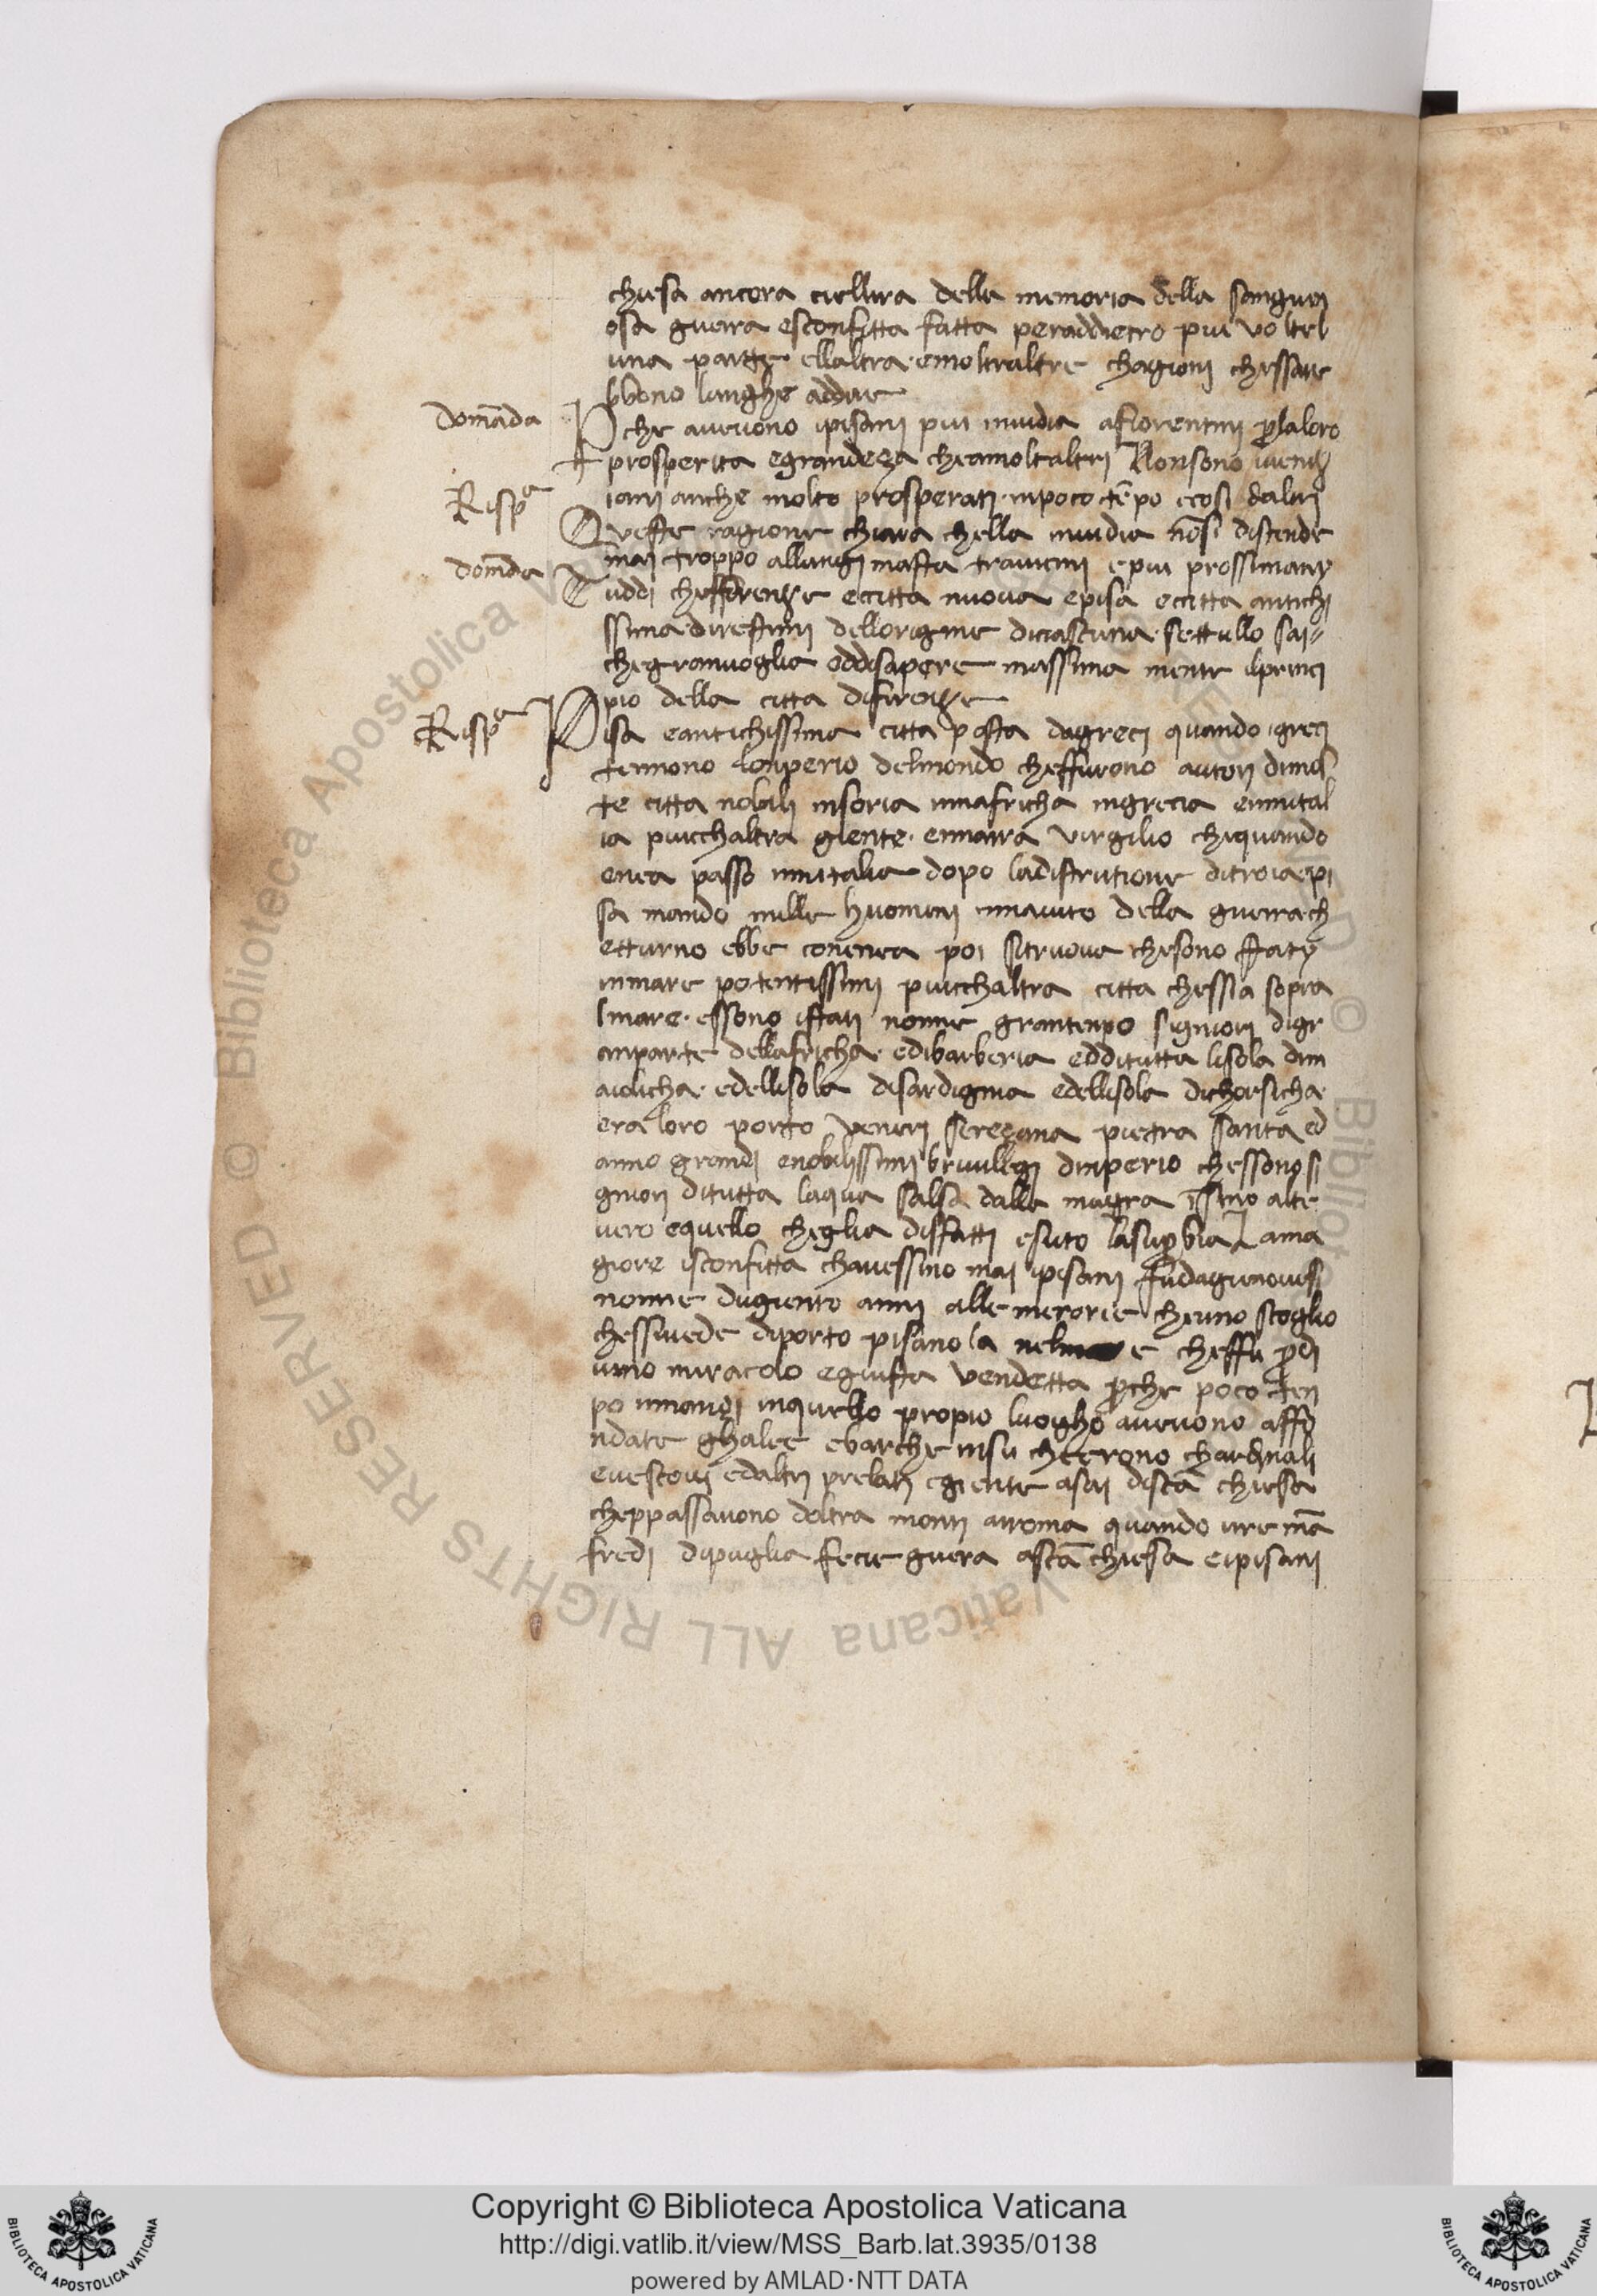 chiesa ancora ciellira della memoria della sanguin
osa guerra esconfitta fatta peraddietro piu volte l
una parte · ellaltra · emoltraltre chagioni chessare
bbono lunghe addire
domāda
Pche avevono ipisani piu invidia afiorentini ꝑlaloro
prosperita egrandeza cheamoltaltri Nonsono iveniz
Rispa
iani anche molto prosperati · inpoco tēpo ecosi daltri
Queste ragione chiara chella invidia nōsi distende
domāda
mai troppo allungi masta travicini epiu prossimany
Tuddi cheffirenze eccitta nuova episa eccitta antichi
ssima · direstimi dellorigine diciascuna · settullo sai
chegranvoglia oddisapere massima mente ilprinci
pio della citta difirenze
Rispa
Pisa eantichissima citta posta dagreci quando igreci
tennono lonperio delmondo cheffurono autori dimol
te citta nobili insoria innafricha ingrecia ennital
ia piucchaltra giente · ennarra virgilio chequando
enea passo innitalia dopo ladistrutione ditroia epi
sa mando mille huomini innaiuto della guerra ch
etturno ebbe conenea poi sitruova chesono stati
inmare potentissimi piucchaltra citta chessia sopra
lmare · essono istati nonne grantenpo signiori digr
anparte dellafricha · edibarberia edditutta lisola dim
aiolicha · edellisola disardignia edellisola dichorsicha
era loro porto veneri serezana pietra santa ed
anno grandi enobilissimi brivilegi dinperio chessono si
gniori ditutta laqua salsa dalla magra issino alte
vero equello cheglia disfatti esuto lasuꝑbia La ma
giore isconfitta chavessino mai ipisani fudagienovesi
nonne dugiento anni alle melorie cheuno scoglio
chessivede diporto pisano la nelmare cheffu ꝑdi
vino miracolo egiusta vendetta ꝑche poco ten
po innanzi inquello propio luogho avevono affo
ndate ghalee ebarche insu cheerono chardinali
evescovi edaltri prelati egiente asai discā chiesa
cheppassavono doltra monti arroma quando ire mā
fredi dipuglia fecie guera ascā chiesa eipisani
Copyright © Biblioteca Apostolica Vaticana
http://digi.vatlib.it/view/MSS_Barb.lat.3935/0138
powered by AMLAD·NTT DATA
BIBLIOTECA APOSTOLICA VATICANA
BIBLIOTECA APOSTOLICA VATICANA